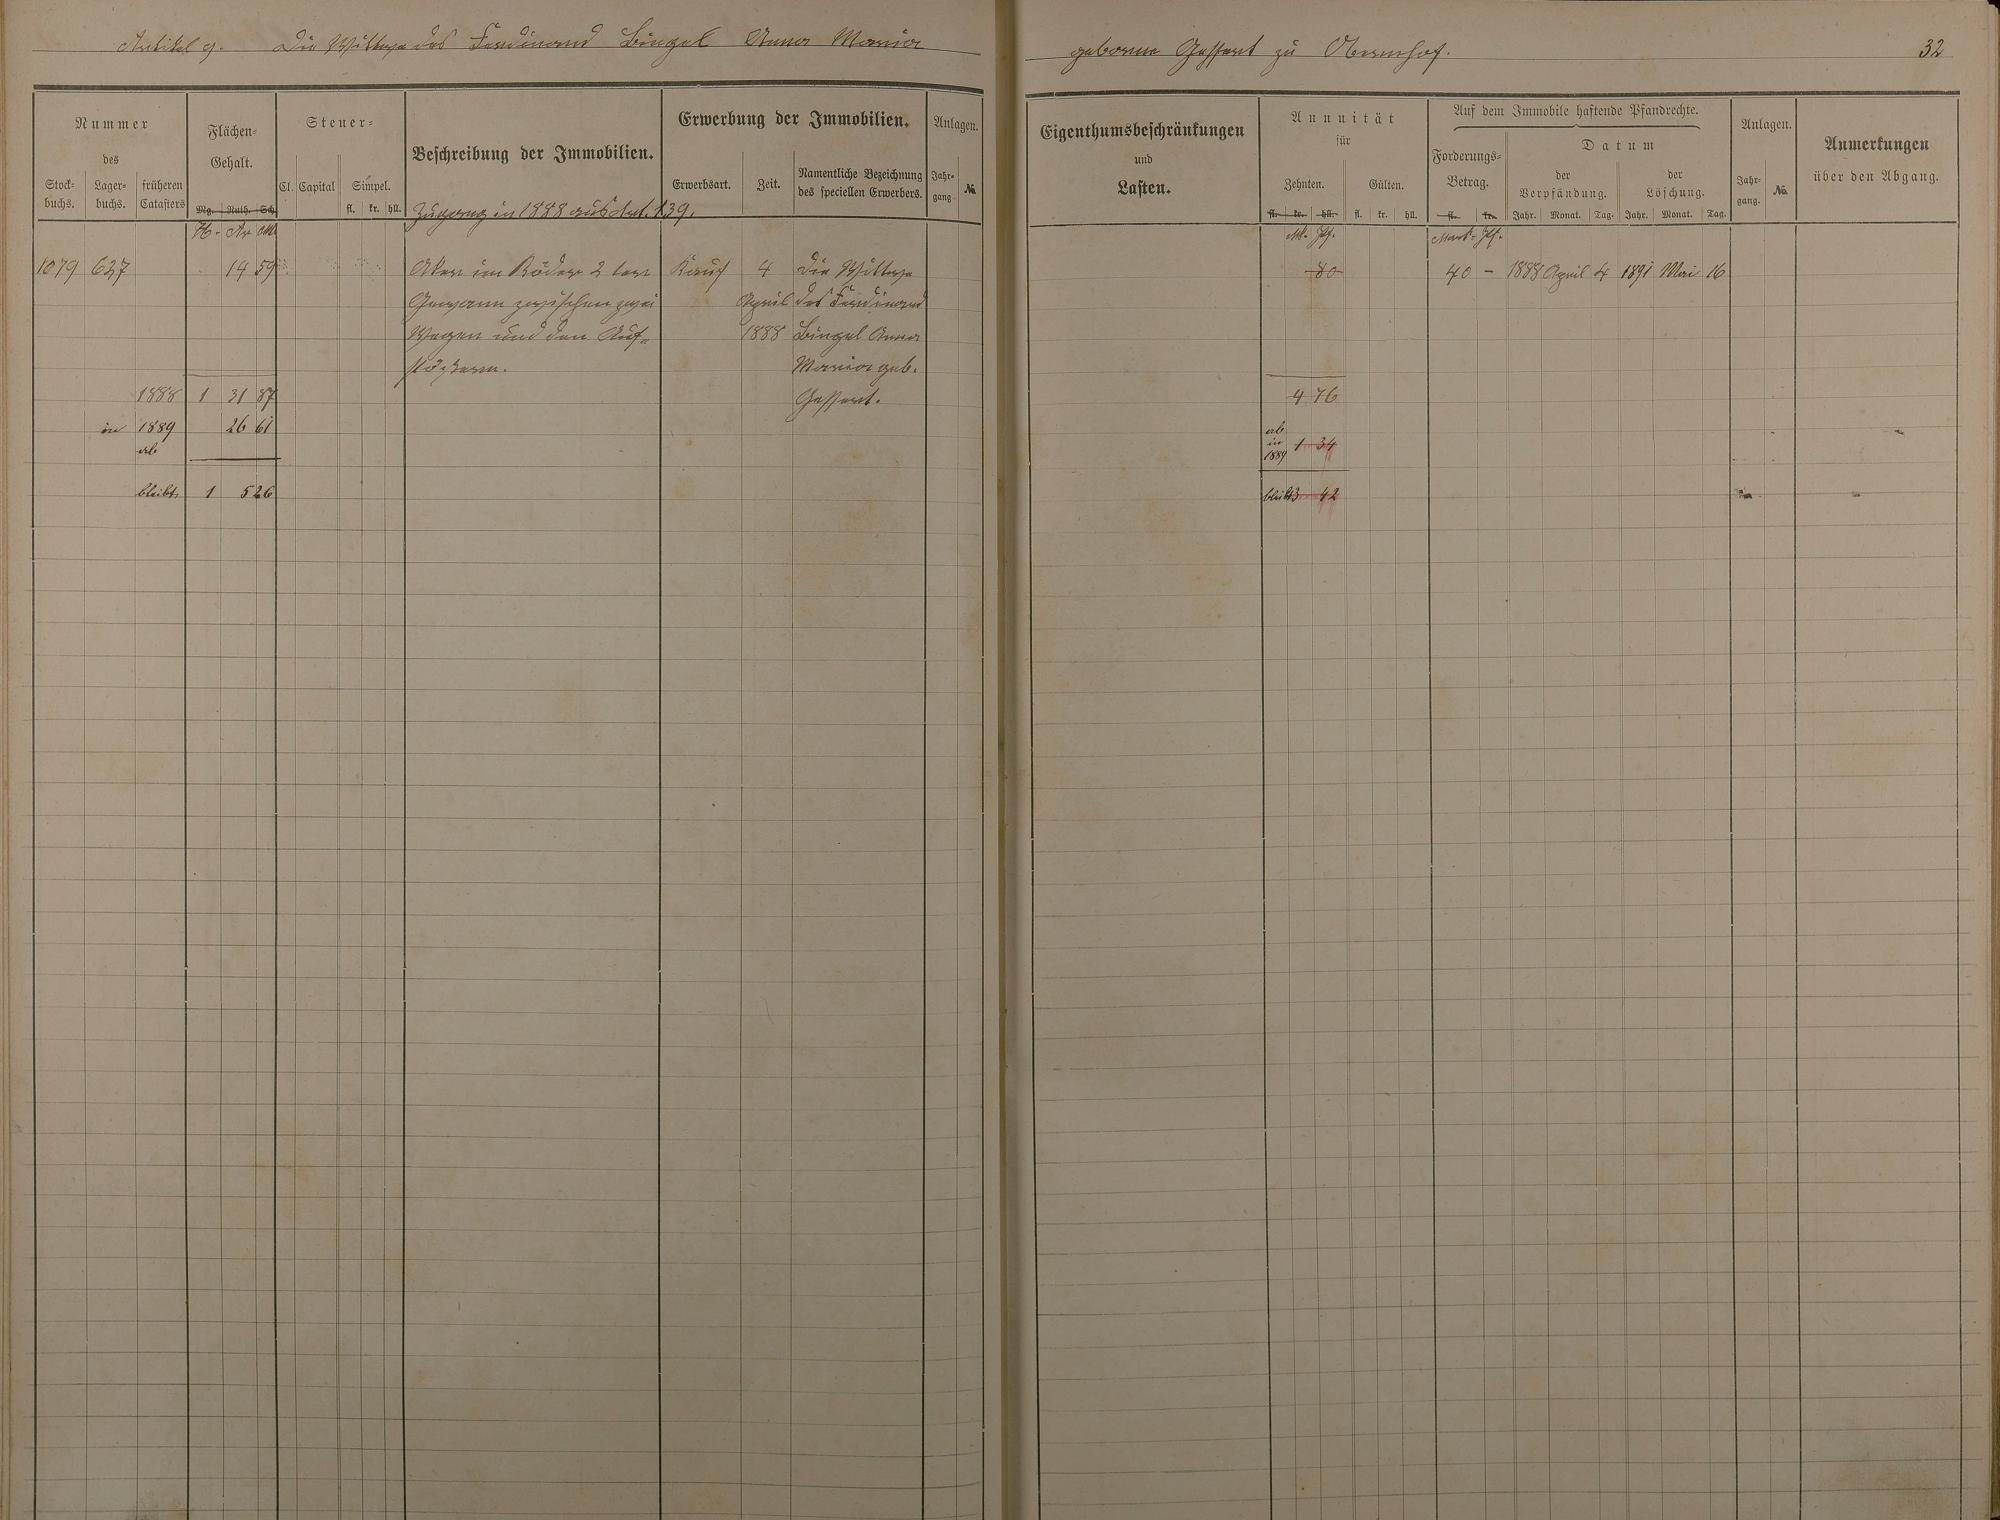 Artikel 9. Die Wittwe des Ferdinand Bingel Anna Maria geborne Gessert zu Obernhof. 32
Nummer
des
Stock-
buchs.
Lager-
buchs.
früheren
Catasters
Flächen-
Gehalt.
Mg. Ruth. Sch.
H. Ar M.
Steuer-
Cl. Capital Simpel.
fl. kr. hll.
Beschreibung der Immobilien.
Zugang in 1888 aus Art. 139.
Erwerbung der Immobilien.
Erwerbsart. Zeit.
Namentliche Bezeichnung
des speciellen Erwerbers.
Anlagen.
Jahr-
gang
No.
Eigenthumsbeschränkungen
und
Lasten.
Annuität
für
Zehnten. Gülten.
fl. kr. hll. fl. kr. hll.
Mk. Pf.
Auf dem Immobile haftende Pfandrechte.
Forderungs-
Betrag.
fl. kr.
Mark. Pf.
Datum
der
Verpfändung.
der
Löschung.
Jahr. Monat. Tag. Jahr. Monat. Tag.
Anlagen.
Jahr-
gang.
No.
Anmerkungen
über den Abgang.
1079 627 14 59 Aker im Röder 2 ter Kauf 4 die Wittwe 80 40 – 1888 April 4 1891 Mai 16
Gewann zwischen zwei April des Ferdinand
Wegen und den Auf- 1888 Bingel Anna
stößern. Maria geb.
1888 1 31 87 Gessert. 4 76
in 1889 26 61 ab in 1889 1 34
ab
bleibt 1 5 26 bleibt 3 42